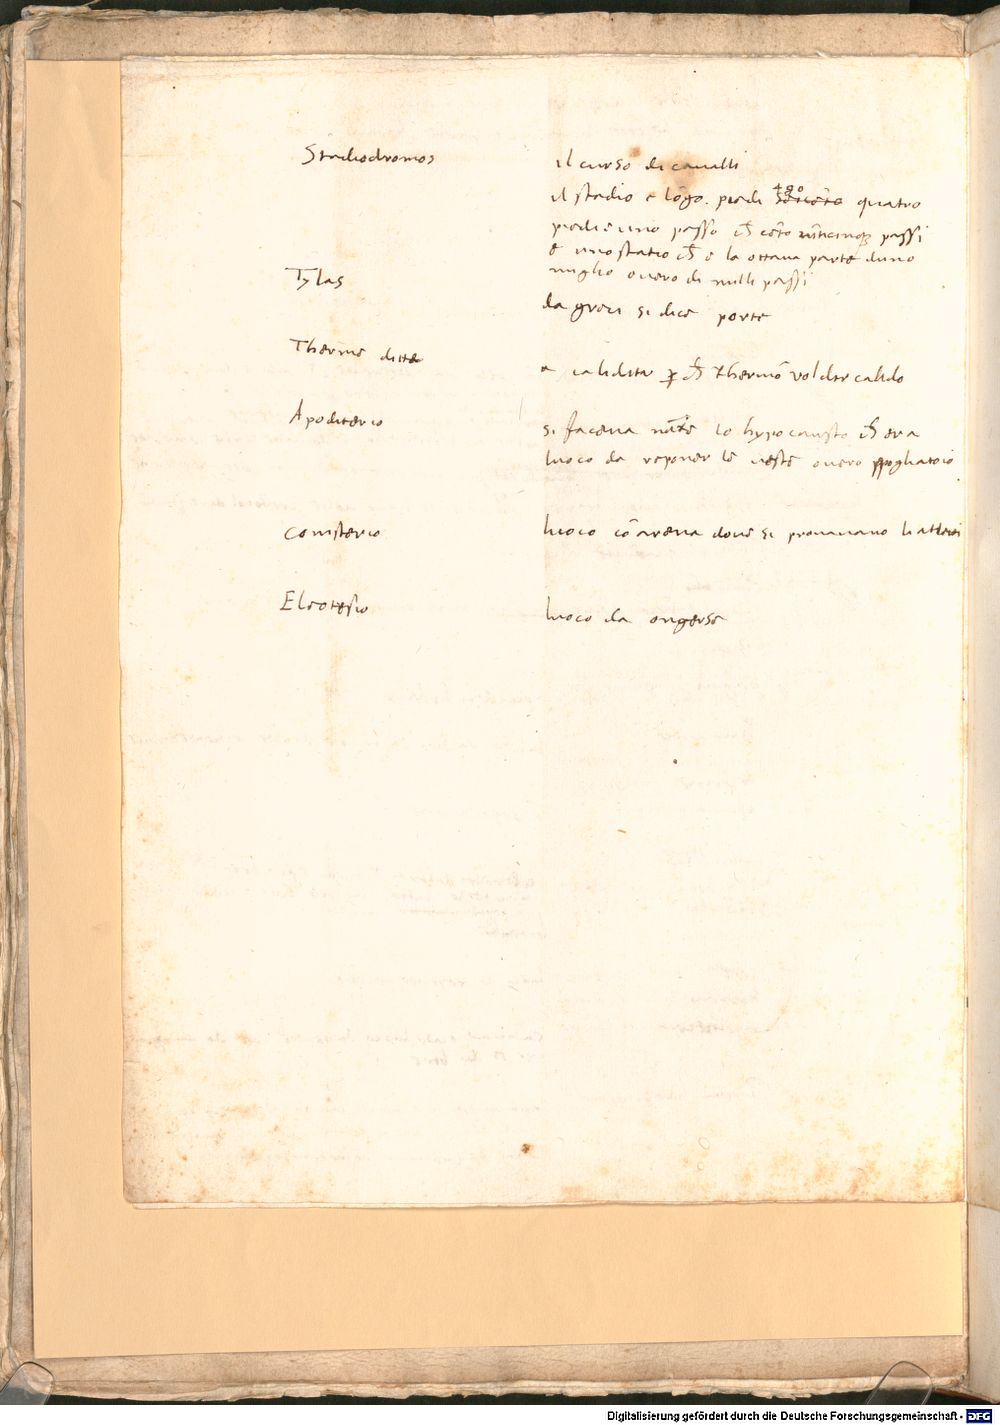 Stadiodromos il curso di cavalli
il stadio e lõgo. piedi 480 quatro
piedi e uno passo cento passi
e uno statio e la ottava parte duno
miglio overo di milli passi
Tylas
da greci si dice porte
Therme ditte
a caliditate thermõ vol dir calido
Apoditerio
si faceva lo hypocausto era
luoco da reponer le veste overo spogliatoio
Conisterio luoco cõ arena dove si provavano li atleti
Eleotesio luoco da ongerse
Digitalisierung gefördert durch die Deutsche Forschungsgemeinschaft - DFG